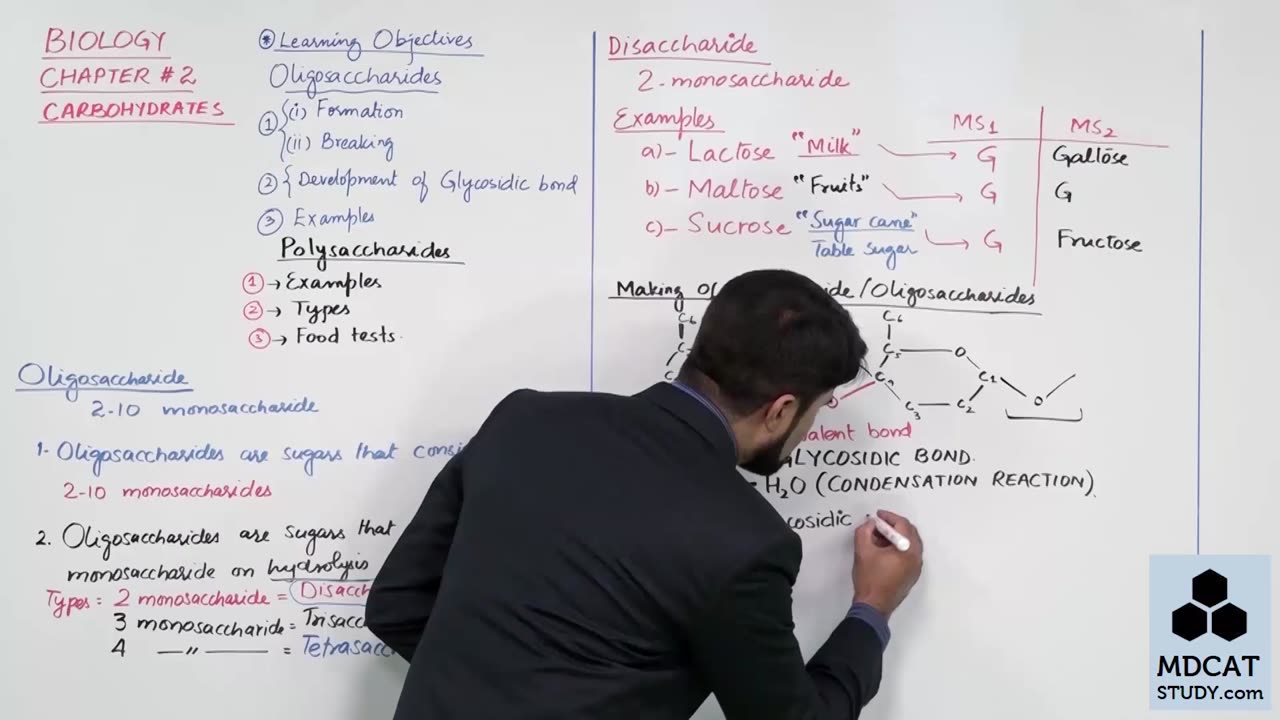 BIOLOGY
CHAPTER #2
CARBOHYDRATES
Learning Objectives
Oligosaccharides
1 (i) Formation
(ii) Breaking
2 Development of Glycosidic bond
3 Examples
Polysaccharides
1 → Examples
2 → Types
3 → Food tests.
Oligosaccharide
2-10 monosaccharide
1- Oligosaccharides are sugars that
2-10 monosaccharides
2. Oligosaccharides are sugars that
monosaccharide on hydrolysis
Types: 2 monosaccharide =
3 monosaccharide =
4 —〃— =
Disaccharide
2-monosaccharide
Examples
MS1 MS2
a)- Lactose "Milk" → G Galtose
b)- Maltose "Fruits" → G G
c)- Sucrose "Sugar cane" → G Fructose
Table sugar
Making /Oligosaccharides
C6 C6
C5 O
C1
O
C3 C2
O
bond
GLYCOSIDIC BOND.
H2O (CONDENSATION REACTION).
MDCAT
STUDY.com